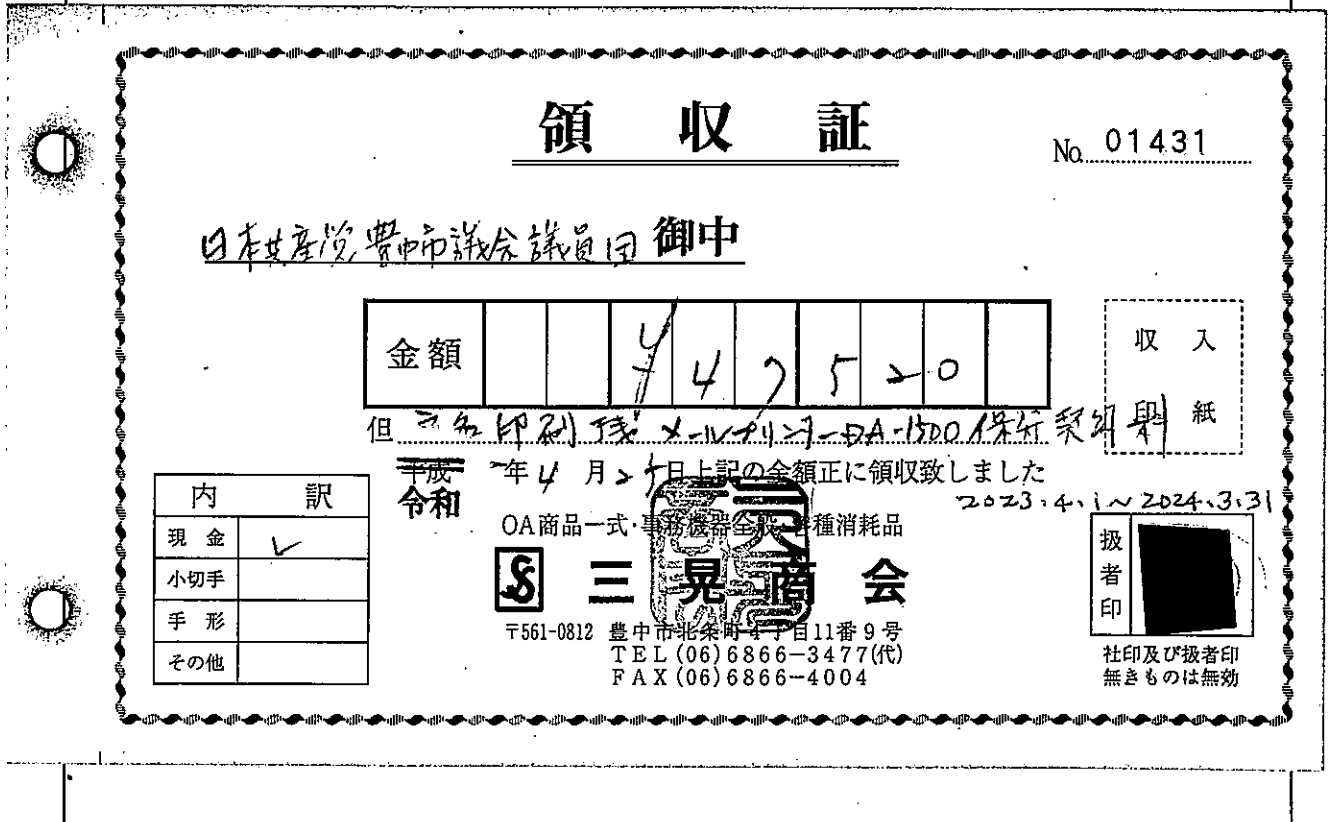 領 収 証
No. 01431
日本共産党豊中市議会議員団 御中
金額 ¥ 4 7 5 2 0
収 入
印 紙
但 宛名印刷 メールプリンターDA-1500保守契約料
平成 年4月25日上記の金額正に領収致しました
令和
2023.4.1~2024.3.31
内 訳
現 金 ✓
小切手
手 形
その他
OA商品一式・事務機器全般・各種消耗品
三 晃 商 会
〒561-0812 豊中市北条町4丁目11番9号
TEL(06)6866-3477(代)
FAX(06)6866-4004
扱者印
社印及び扱者印
無きものは無効